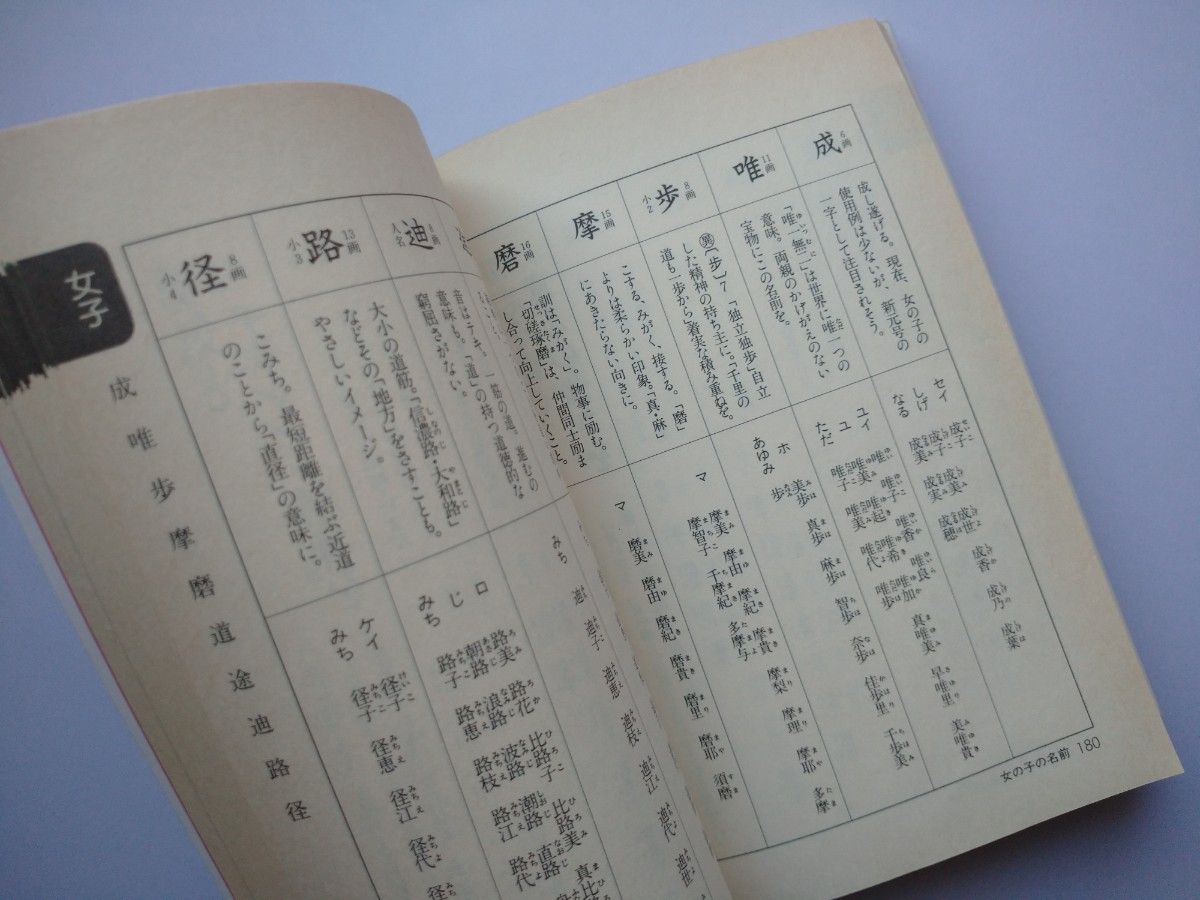 成
6画
成し遂げる。現在、女の子の
使用例は少ないが、新元号の
一字として注目されそう。
セイ
しげ
なる
成子
成子
成美
成美
成実
成世
成穂
成香
成乃
成葉
唯
11画
「唯一無二」は世界に唯一つの
意味。両親のかげがえのない
宝物にこの名前を。
ユイ
ユ
ただ
唯
唯美
唯子
唯子
唯起
唯美
唯香
唯希
唯代
唯良
唯加
唯歩
真唯美
早唯里
美唯貴
歩
8画
小2
異【步】7 「独立独歩」自立
した精神の持ち主に。「千里の
道も一歩から」着実な積み重ねを。
ホ
あゆみ
美歩
歩
真歩
麻歩
智歩
奈歩
佳歩里
千歩美
摩
15画
こする、みがく、接する。「磨」
よりは柔らかい印象。「真・麻」
にあきたらない向きに。
マ
摩美
摩智子
摩由
千摩紀
摩紀
多摩与
摩貴
摩梨
摩理
摩耶
多摩
磨
16画
訓は「みがく」。物事に励む。
「切磋琢磨」は、仲間同士励ま
し合って向上していくこと。
マ
磨美
磨由
磨紀
磨貴
磨里
磨耶
須磨
女の子の名前 180
迪
人名
音はテキ。一筋の道、進むの
意味も。「道」の持つ道徳的な
窮屈さがない。
みち
迪
迪子
迪恵
迪枝
迪江
迪代
迪世
路
13画
小3
大小の道筋。「信濃路・大和路」
などその「地方」をさすことも。
やさしいイメージ。
ロ
じ
みち
路美
朝路
路子
路花
浪路
路恵
比路子
波路
路枝
比路美
潮路
路江
直路
路代
径
8画
小4
こみち。最短距離を結ぶ近道
のことから「直径」の意味に。
ケイ
みち
径子
径子
径恵
径江
径代
女子
成 唯 歩 摩 磨 道 途 迪 路 径